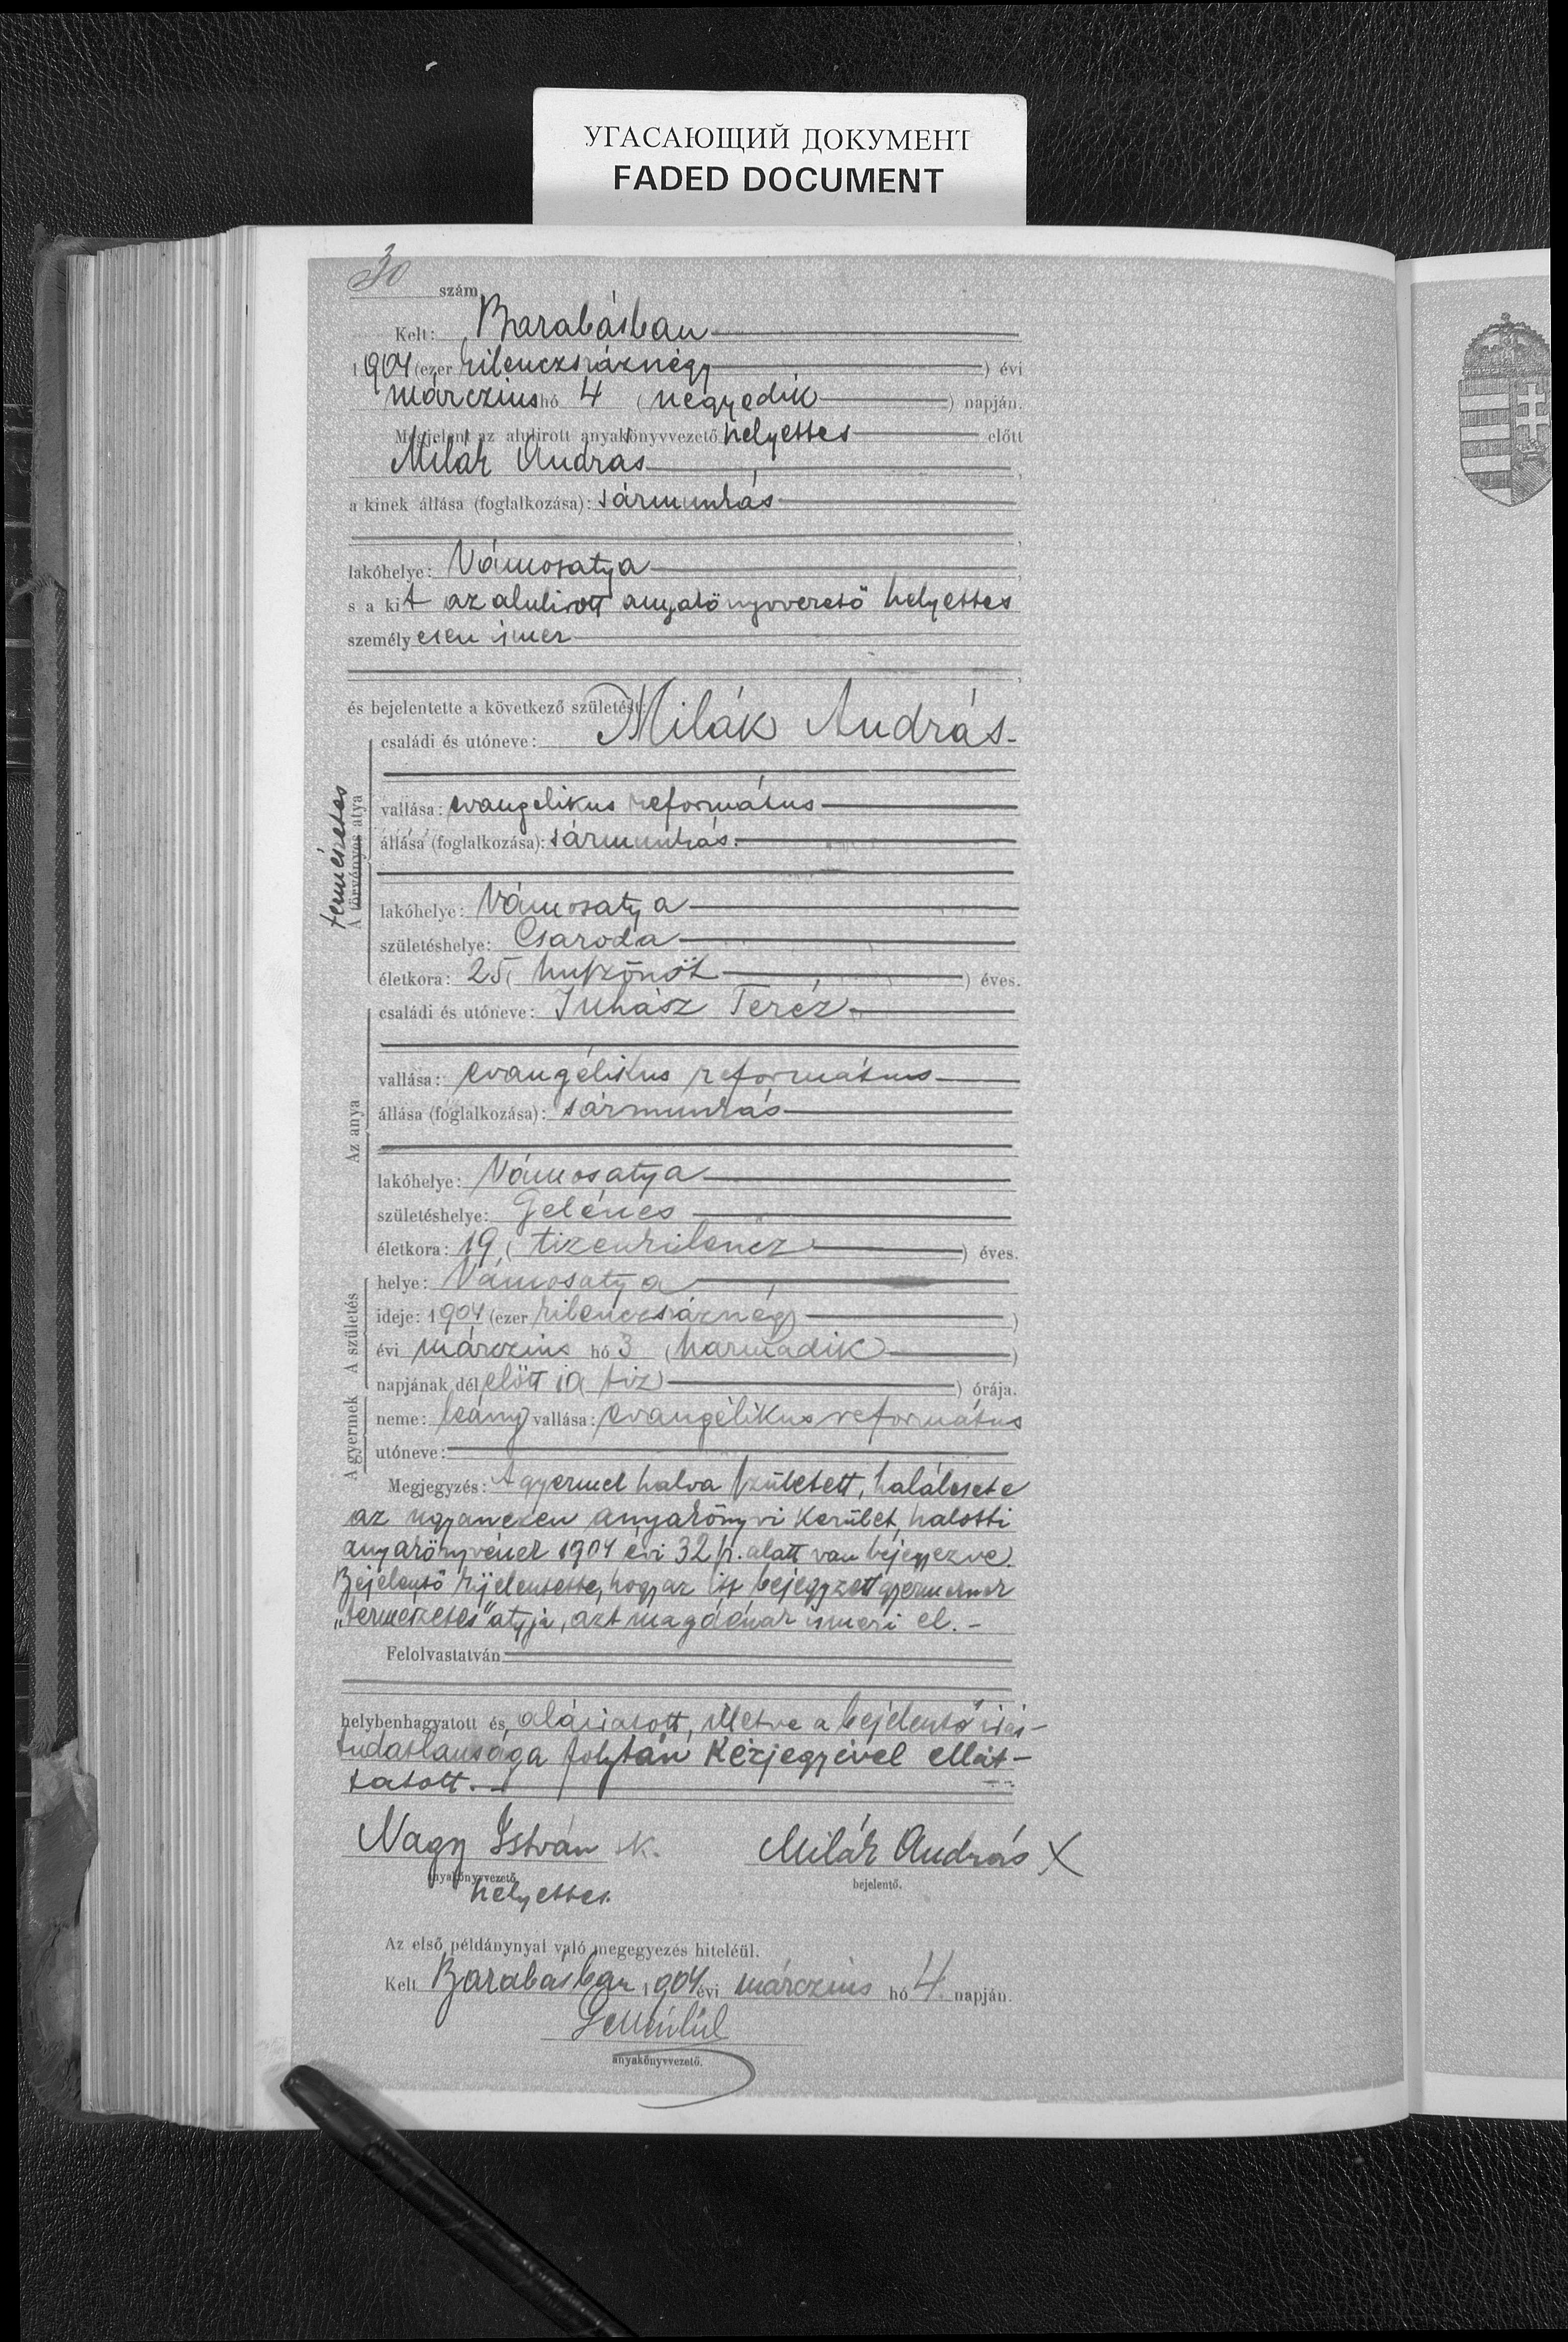 УГАСАЮЩИЙ ДОКУМЕНТ
FADED DOCUMENT
30 szám.
Kelt: Barabásban
1904 (ezer kilenczszáznégy) évi
márczius hó 4 (negyedik) napján.
Megjelent az alulirott anyakönyvvezető helyettes előtt
Milák András,
a kinek állása (foglalkozása): sármunkás
lakóhelye: Vámosatya,
s a kit az alulirott anyakönyvvezető helyettes
személyesen ismer
és bejelentette a következő születést:
természetes
A törvényes atya
családi és utóneve: Milák András
vallása: evangelikus református
állása (foglalkozása): sármunkás.
lakóhelye: Vámosatya
születéshelye: Csaroda
életkora: 25 (huszönöt) éves.
Az anya
családi és utóneve: Juhász Teréz
vallása: evangélikus református
állása (foglalkozása): sármunkás
lakóhelye: Vámosatya
születéshelye: Gelénes
életkora: 19 (tizenkilencz) éves.
A születés
helye: Vámosatya
ideje: 1904 (ezer kilenczszáznégy)
évi márczius hó 3 (harmadik)
napjának dél előtt 10 (tiz) órája.
A gyermek
neme: leány vallása: evangélikus református
utóneve:
Megjegyzés: A gyermek halva született, halálesete
az ugyanezen anyakönyvi kerület, halotti
anyakönyvének 1904 évi 32 sz. alatt van bejegyezve.
Bejelentő kijelentette, hogy az itt bejegyzett gyermeknek
„természetes" atyja, azt magáénak ismeri el. -
Felolvastatván
helybenhagyatott és aláiratott, illetve a bejelentő irás-
tudatlansága folytán kézjegyével ellát-
tatott.
Nagy István sk. Milák András X
anyakönyvvezető helyettes. bejelentő.
Az első példánynyal való megegyezés hiteléül.
Kelt Barabásban 1904 évi márczius hó 4. napján.
anyakönyvvezető.